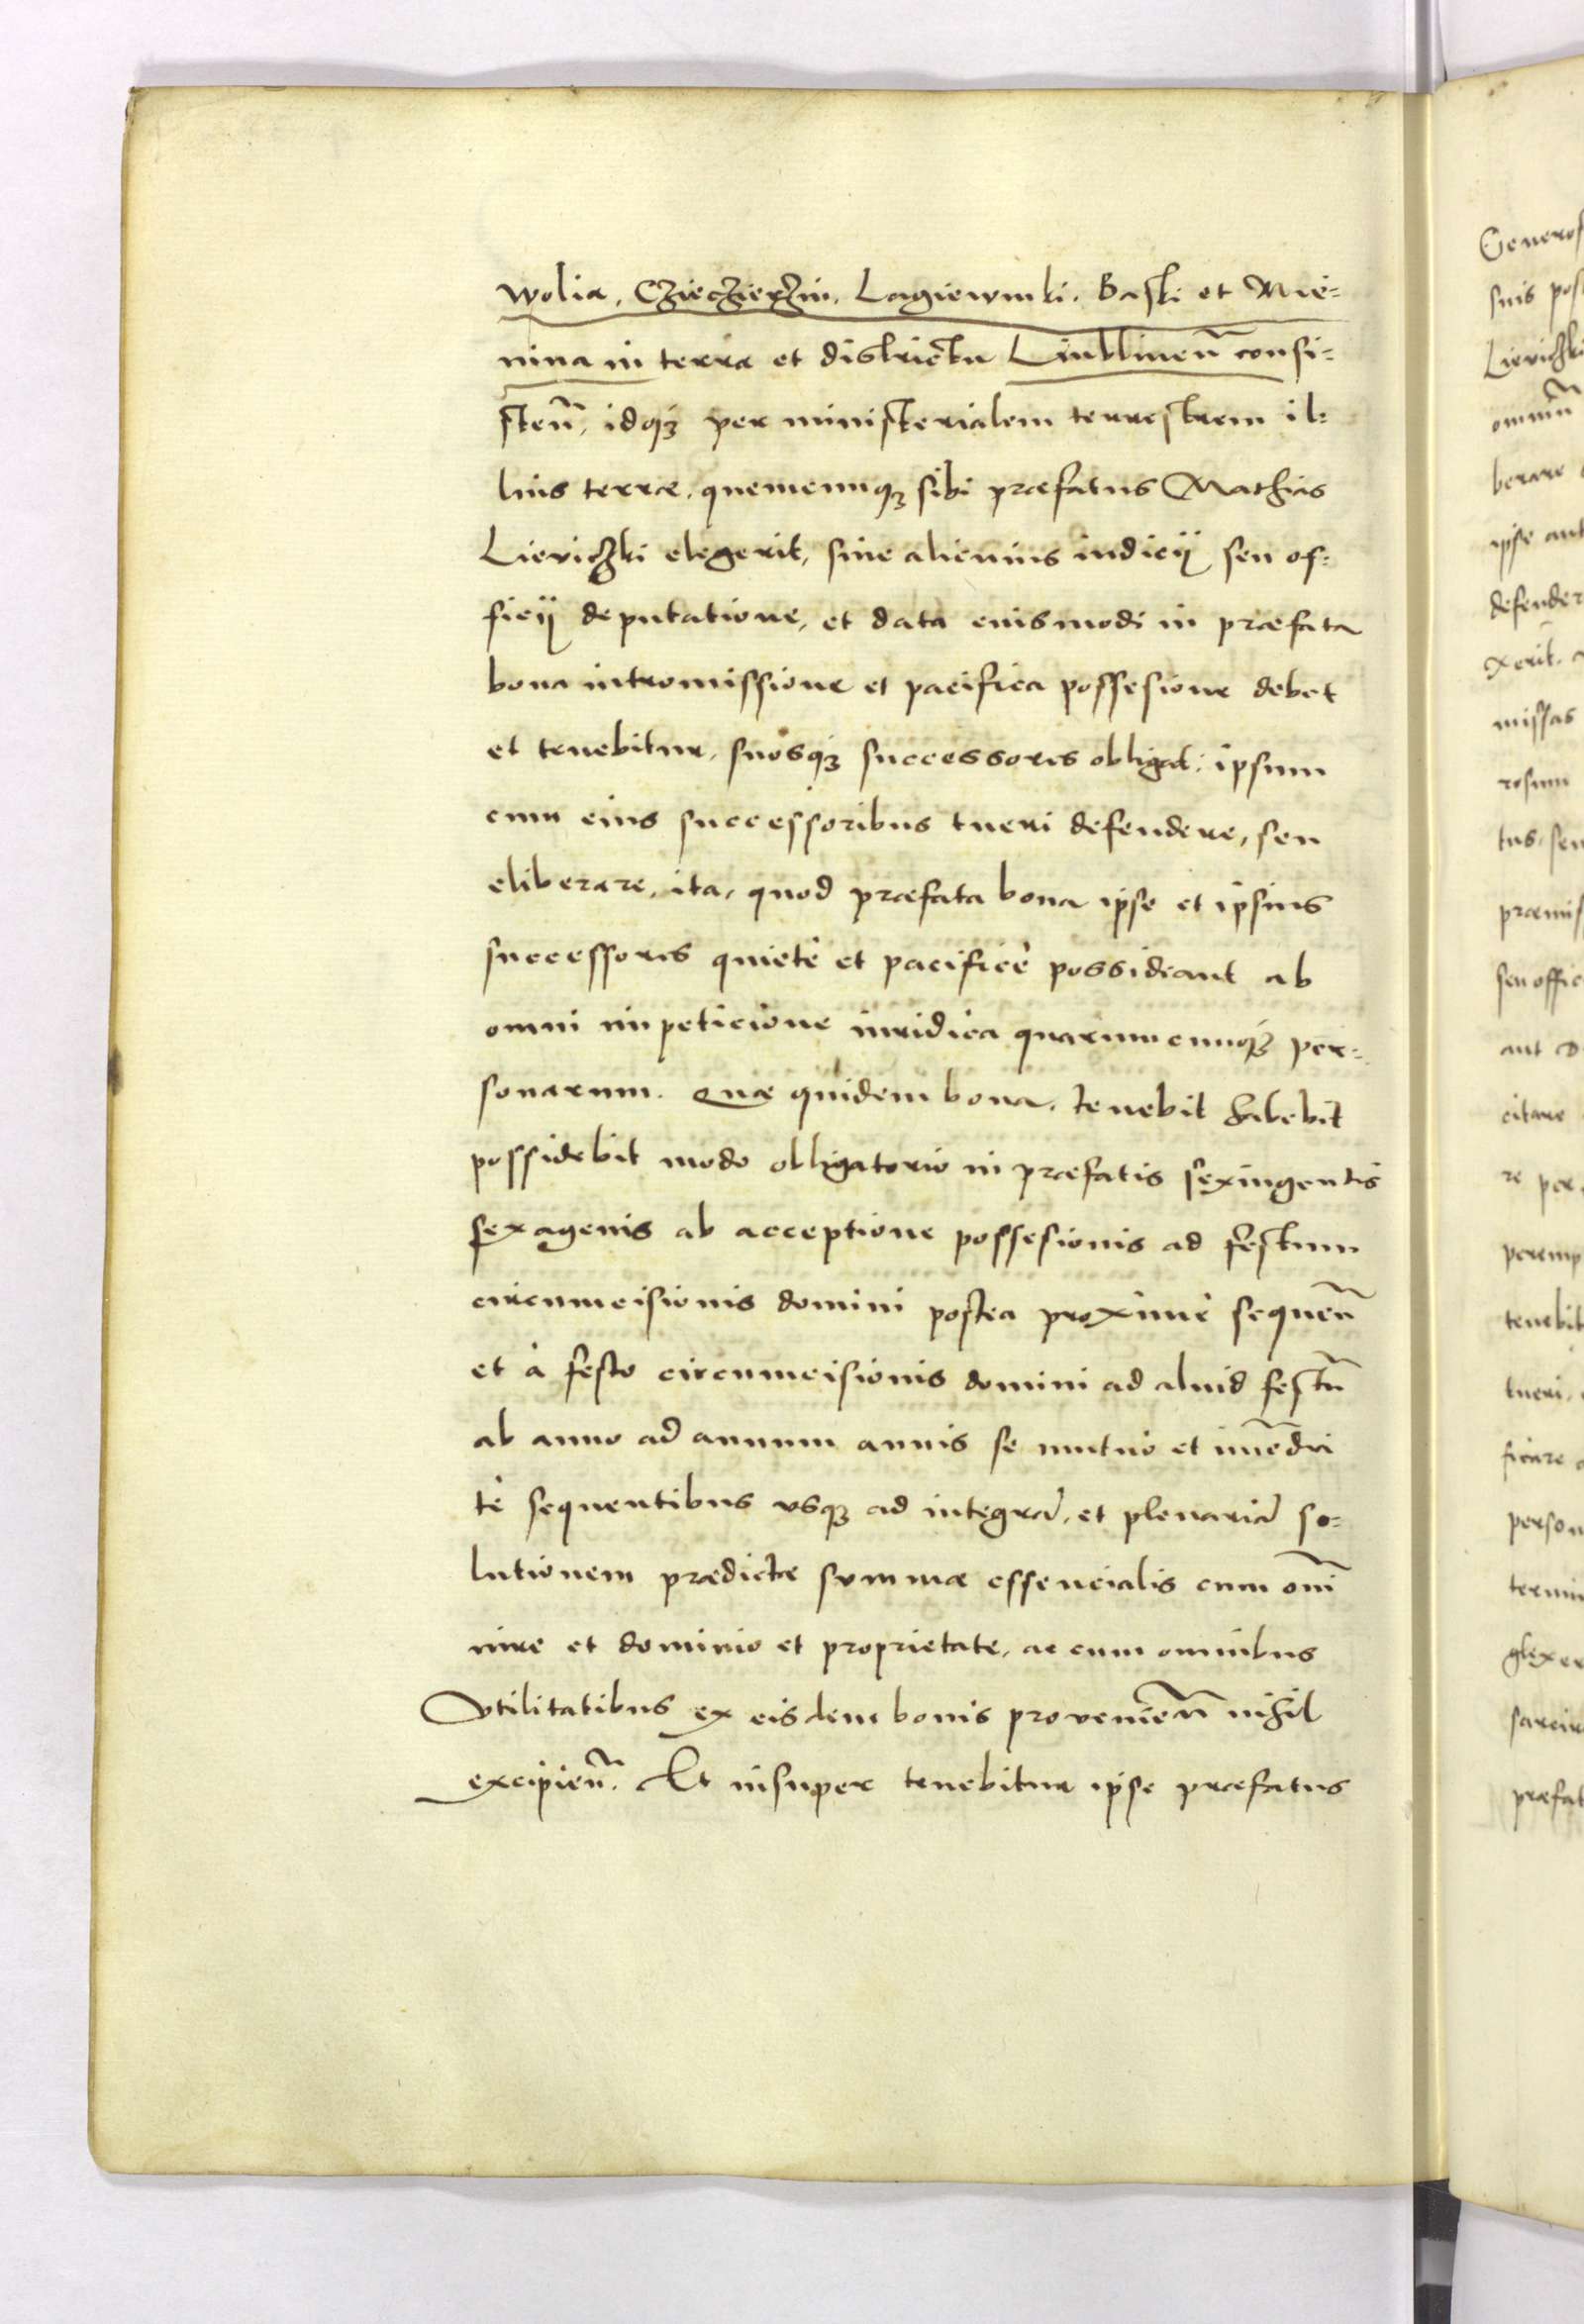 wolia, Cziecźierzin, Lagiewniki, Baski et Mie=
nina in terra et districtu Liublinen̄ consi=
sten̄, idq₃ per ministerialem terrestrem il=
lius terræ, quemcunq₃ sibi præfatus Mathias
Lievichzki elegerit, sine alicuius iudicij seu of=
ficij deputatione, et data euismodi in præfata
bona intromissione et pacifica possesione debet
et tenebitur, suosq₃ successores obligat: ipsum
cum eius successoribus tueri defendere, seu
eliberare, ita, quod præfata bona ipse et ipsius
successores quietè et pacificè possideant ab
omni impeticione iuridica quarumcunq₃ per=
sonarum. Quæ quidem bona, tenebit habebit
possidebit modo obligatorio in præfatis sexingentis
sexagenis ab acceptione possesionis ad festum
circumcisionis domini postea proximè sequen̄
et à festo circumcisionis domini ad aliud festū
ab anno ad annum annis se mutuò et im̄edia
tè sequentibus vsq₃ ad integrā, et plenariā so=
lutionem prædictæ summæ essencialis cum om̄i
iure et dominio et proprietate, ac cum omnibus
Vtilitatibus ex eisdem bonis provenien̄ nihil
excipien̄. Et insuper tenebitur ipse præfatus
Generos
suis pos
Lievichzki
omnin̄
berare
ipse aut
defender
xerit.
missas
rosum
tus, seu
præmis
seu offic
aut
citare
re per
peremp
tenebit
tueri,
ficare
person
termin
glexer
sarcir
præfat